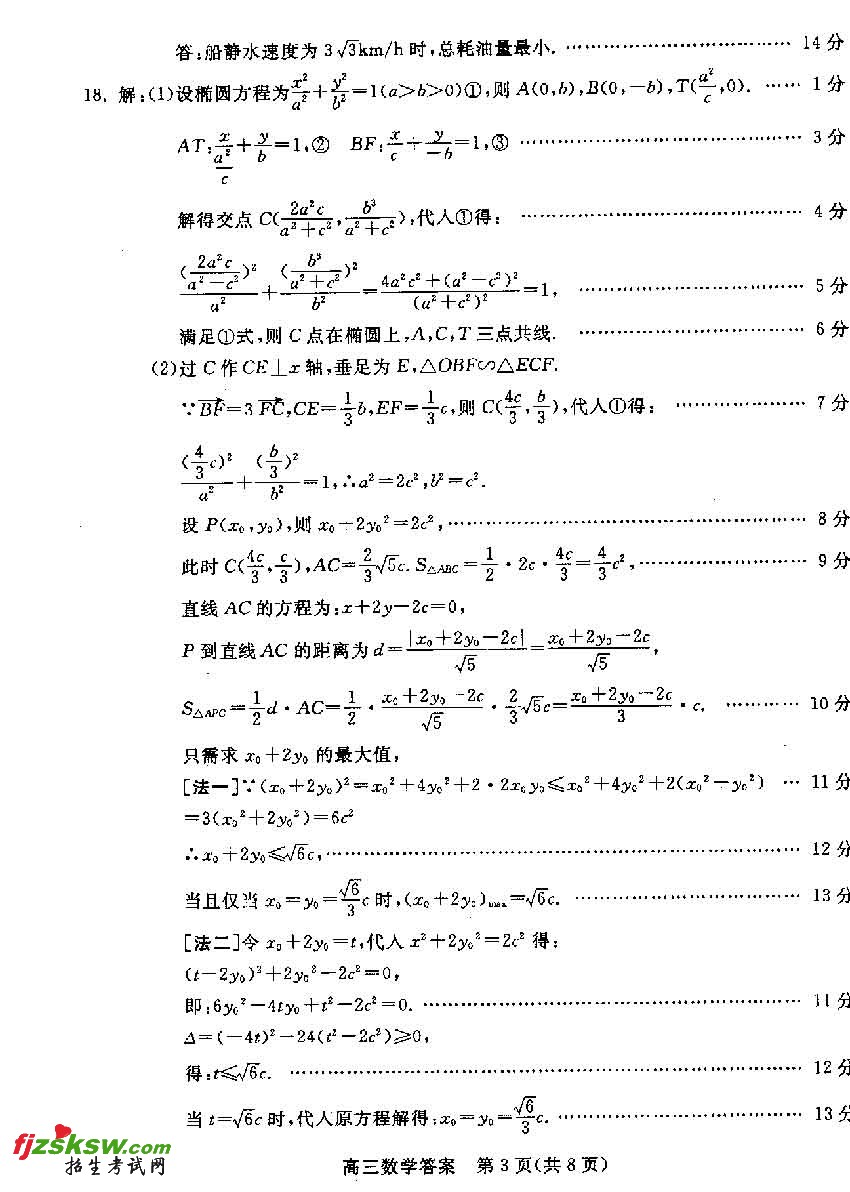 答:船静水速度为 3√3km/h 时,总耗油量最小. …………………… 14 分
18. 解:(1)设椭圆方程为x²/a²+y²/b²=1(a>b>0)①,则 A(0,b),B(0,-b),T(a²/c,0). …… 1 分
AT:x/(a²/c)+y/b=1,② BF:x/c+y/-b=1,③ …………………… 3 分
解得交点 C(2a²c/(a²+c²),b³/(a²+c²)),代入①得: …………………… 4 分
(2a²c/(a²-c²))²/a²+(b³/(a²+c²))²/b²=(4a²c²+(a²-c²)²)/(a²+c²)²=1, …………………… 5 分
满足①式,则 C 点在椭圆上,A,C,T 三点共线. …………………… 6 分
(2)过 C 作 CE⊥x 轴,垂足为 E,△OBF∽△ECF.
∵BF→=3 FC→,CE=1/3b,EF=1/3c,则 C(4c/3,b/3),代入①得: …………………… 7 分
(4/3c)²/a²+(b/3)²/b²=1,∴a²=2c²,b²=c².
设 P(x₀,y₀),则 x₀+2y₀²=2c², …………………… 8 分
此时 C(4c/3,c/3),AC=2/3√5c. S△ABC=1/2·2c·4c/3=4/3c², …………………… 9 分
直线 AC 的方程为:x+2y-2c=0,
P 到直线 AC 的距离为 d=|x₀+2y₀-2c|/√5=(x₀+2y₀-2c)/√5,
S△APC=1/2d·AC=1/2·(x₀+2y₀-2c)/√5·2/3√5c=(x₀+2y₀-2c)/3·c, ………… 10 分
只需求 x₀+2y₀ 的最大值,
[法一]∵(x₀+2y₀)²=x₀²+4y₀²+2·2x₀y₀≤x₀²+4y₀²+2(x₀²+y₀²) … 11 分
=3(x₀²+2y₀²)=6c²
∴x₀+2y₀≤√6c, …………………… 12 分
当且仅当 x₀=y₀=√6/3c 时,(x₀+2y₀)max=√6c. …………………… 13 分
[法二]令 x₀+2y₀=t,代入 x²+2y₀²=2c² 得:
(t-2y₀)²+2y₀²-2c²=0,
即:6y₀²-4ty₀+t²-2c²=0. …………………… 11 分
Δ=(-4t)²-24(t²-2c²)≥0,
得:t≤√6c. …………………… 12 分
当 t=√6c 时,代入原方程解得:x₀=y₀=√6/3c. …………………… 13 分
fjzsksw.com
招生考试网
高三数学答案 第 3 页(共 8 页)